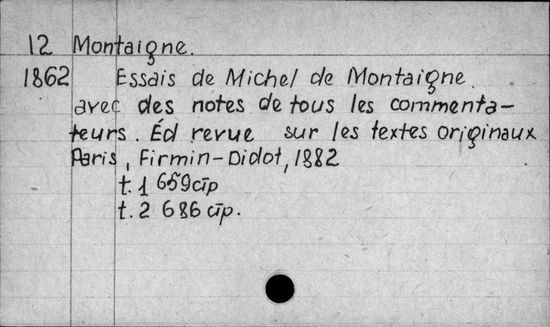 12 Montaigne.
1862 Essais de Michel de Montaigne
avec des notes de tous les commenta-
teurs. Éd revue sur les textes originaux
Paris, Firmin-Didot, 1882
t. 1 659 c̄p
t. 2 686 c̄p.